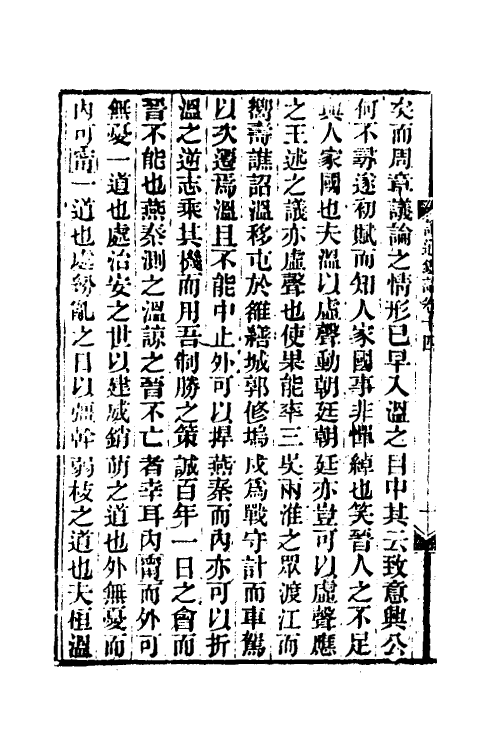 次而周章議論之情形已早入溫之目中其云致意興公
何不尋遂初賦而知人家國事非憚綽也笑晉人之不足
與人家國也夫溫以虛聲動朝廷朝廷亦豈可以虛聲應
之王述之議亦虛聲也使果能率三吳兩淮之眾渡江而
嚮壽譙詔溫移屯於雒繕城郭修塢戍為戰守計而車駕
以次遷焉溫且不能中止外可以捍燕秦而內亦可以折
溫之逆志乘其機而用吾制勝之策誠百年一日之會而
晉不能也燕秦測之溫諒之晉不亡者幸耳內甯而外可
無憂一道也處治安之世以建威銷萌之道也外無憂而
內可甯一道也處勢亂之日以彊幹弱枝之道也夫桓溫
讀通鑑論卷十四